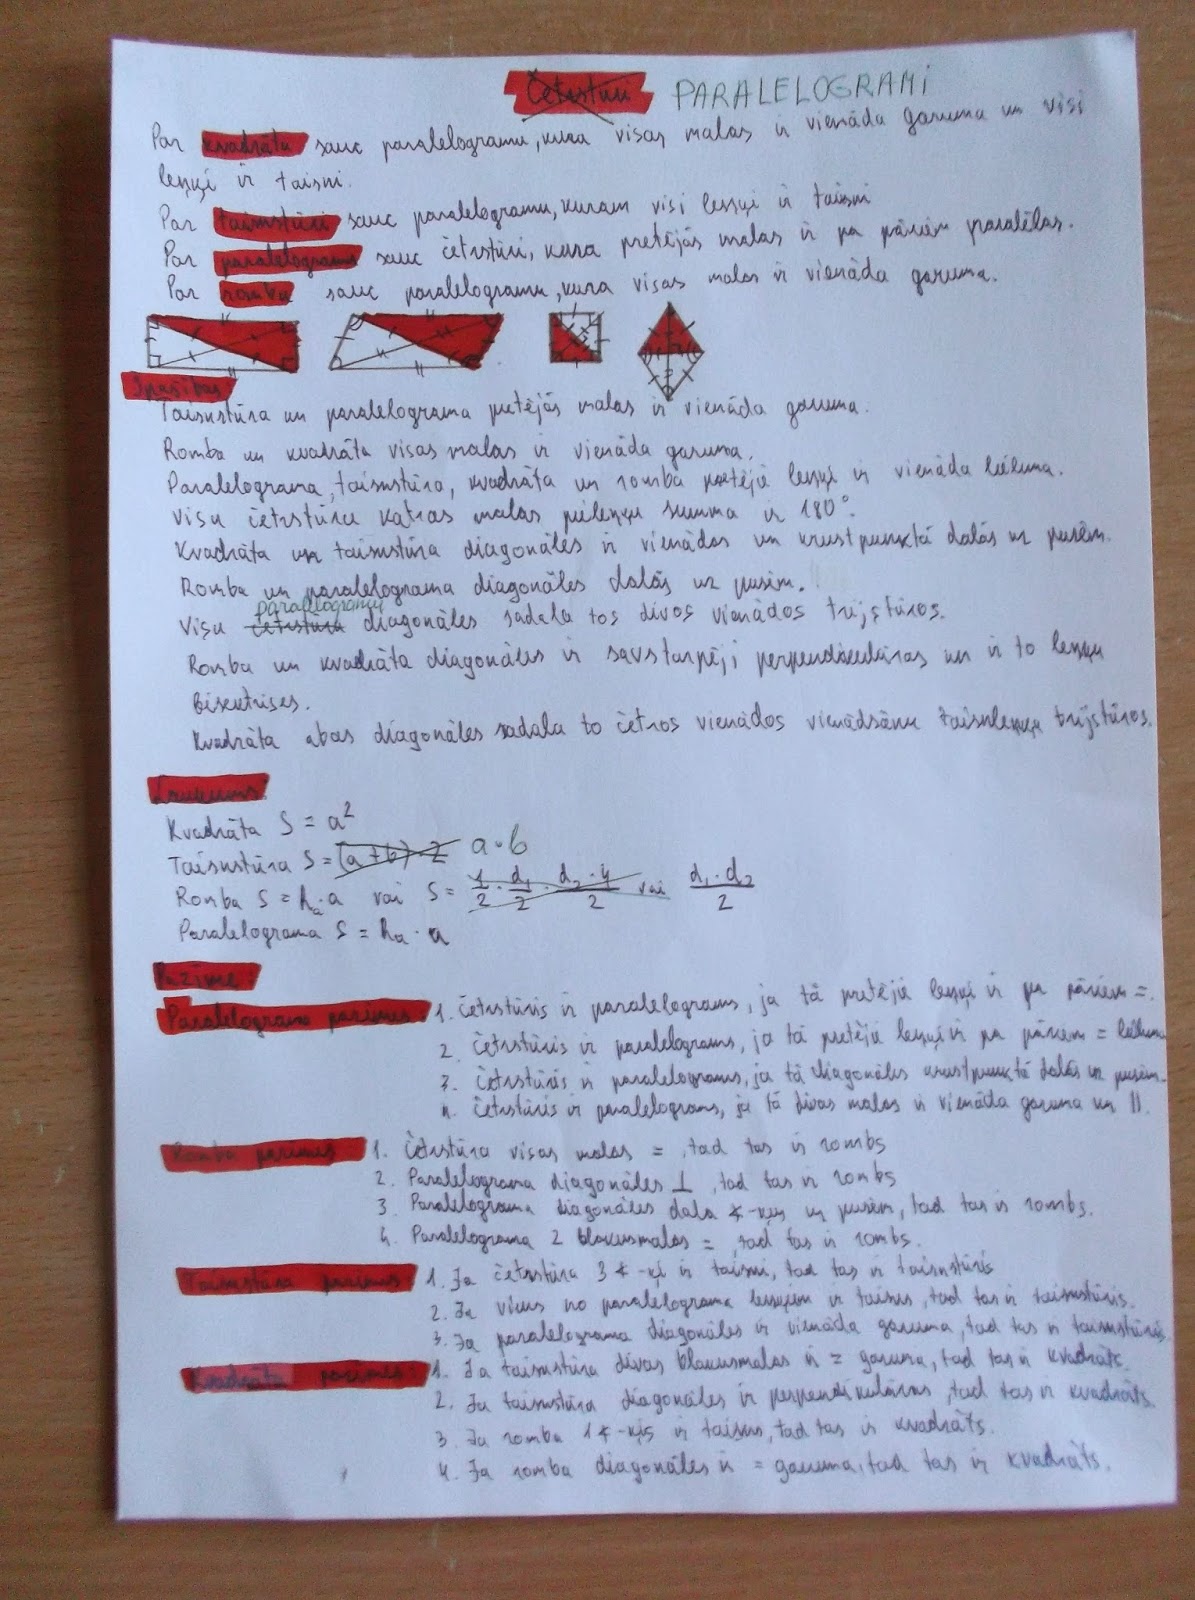 Četrstūri PARALELOGRAMI
Par kvadrātu sauc paralelogramu, kura visas malas ir vienāda garuma un visi
leņķi ir taisni.
Par taisnstūri sauc paralelogramu, kuram visi leņķi ir taisni
Par paralelogramu sauc četrstūri, kura pretējās malas ir pa pāriem paralēlas.
Par rombu sauc paralelogramu, kura visas malas ir vienāda garuma.
Īpašības
Taisnstūra un paralelograma pretējās malas ir vienāda garuma.
Romba un kvadrāta visas malas ir vienāda garuma.
Paralelograma, taisnstūra, kvadrāta un romba pretējie leņķi ir vienāda lieluma.
Visu četrstūru katras malas pieleņķu summa ir 180°.
Kvadrāta un taisnstūra diagonāles ir vienādas un krustpunktā dalās uz pusēm.
Romba un paralelograma diagonāles dalās uz pusēm.
paralelogramu
Visu četrstūru diagonāles sadala tos divos vienādos trijstūros.
Romba un kvadrāta diagonāles ir savstarpēji perpendikulāras un ir to leņķu
bisektrises.
Kvadrāta abas diagonāles sadala to četros vienādos vienādsānu taisnleņķa trijstūros.
Laukums:
Kvadrāta S = a²
Taisnstūra S = (a+b)·2 a·b
Romba S = hₐ·a vai S = 1/2 · d₁/2 · d₂·4/2 vai d₁·d₂/2
Paralelograma S = hₐ · a
Pazīme:
Paralelograma pazīmes: 1. Četrstūris ir paralelograms, ja tā pretējie leņķi ir pa pāriem =.
2. Četrstūris ir paralelograms, ja tā pretējie leņķi ir pa pāriem = lieluma
3. Četrstūris ir paralelograms, ja tā diagonāles krustpunktā dalās uz pusēm.
4. Četrstūris ir paralelograms, ja tā divas malas ir vienāda garuma un ||.
Romba pazīmes 1. Četrstūra visas malas =, tad tas ir rombs
2. Paralelograma diagonāles ⊥, tad tas ir rombs
3. Paralelograma diagonāles dala ∢-ķus uz pusēm, tad tas ir rombs.
4. Paralelograma 2 blakusmalas =, tad tas ir rombs.
Taisnstūra pazīmes 1. Ja četrstūra 3 ∢-ķi ir taisni, tad tas ir taisnstūris
2. Ja viens no paralelograma leņķiem ir taisns, tad tas ir taisnstūris.
3. Ja paralelograma diagonāles ir vienāda garuma, tad tas ir taisnstūris.
Kvadrāta pazīmes: 1. Ja taisnstūra divas blakusmalas ir = garuma, tad tas ir kvadrāts.
2. Ja taisnstūra diagonāles ir perpendikulāras, tad tas ir kvadrāts.
3. Ja romba 1 ∢-ķis ir taisns, tad tas ir kvadrāts.
4. Ja romba diagonāles ir = garuma, tad tas ir kvadrāts.